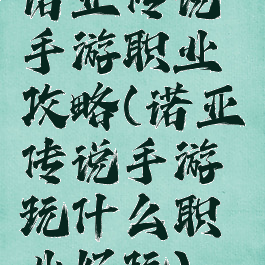 诺亚传说
手游职业
攻略(诺亚
传说手游
玩什么职
业好玩)